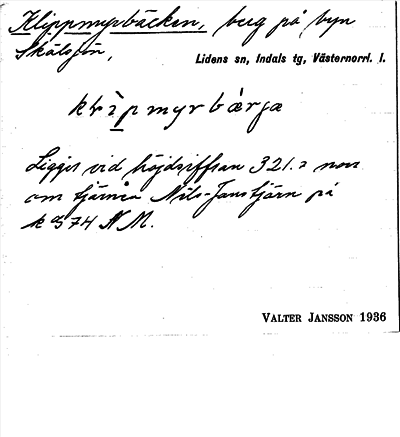 Klippmyrbäcken, berg på byn
Skälsjön,
Lidens sn, Indals tg, Västernorrl. l.
Ligger vid höjdsiffran 321.2 norr
om tjärnen Nils-Janstjärn på
k 574 N M.
VALTER JANSSON 1936